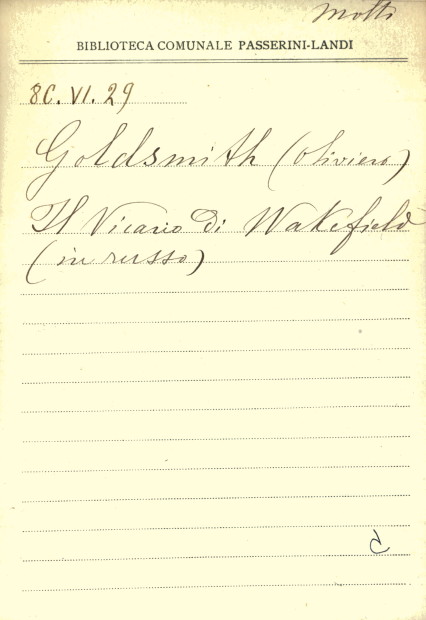 Motti
BIBLIOTECA COMUNALE PASSERINI-LANDI
8C. VI. 29
Goldsmith (Oliviero)
Il Vicario di Wakefield
(in russo)